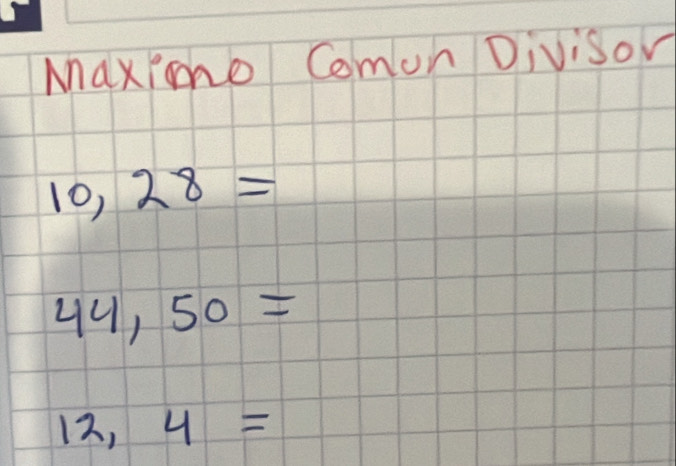 Maximo Comun Divisor
10, 28 =
44, 50 =
12, 4 =